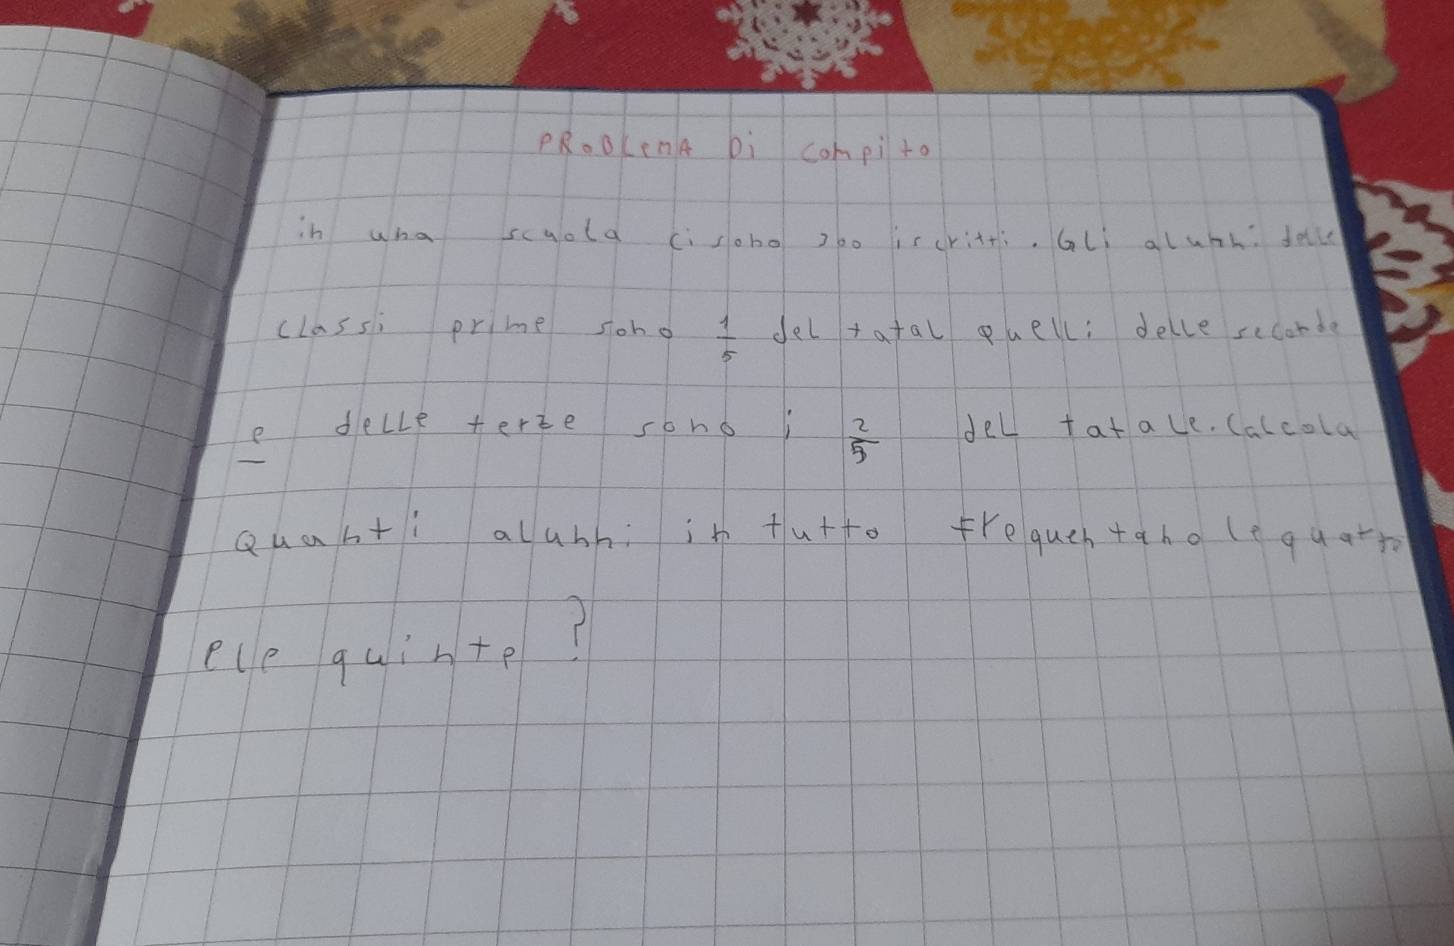 PROBLEMA Di compito
in una scuola ci sono 300 iscritti. GLi alunni delle
classi prime sono 1/5 del total quelli delle seconde
e delle terze sono i 2/5 del tatale. Calcola
Quanti alunni in tutto frequentano le quarte
e le quinte?